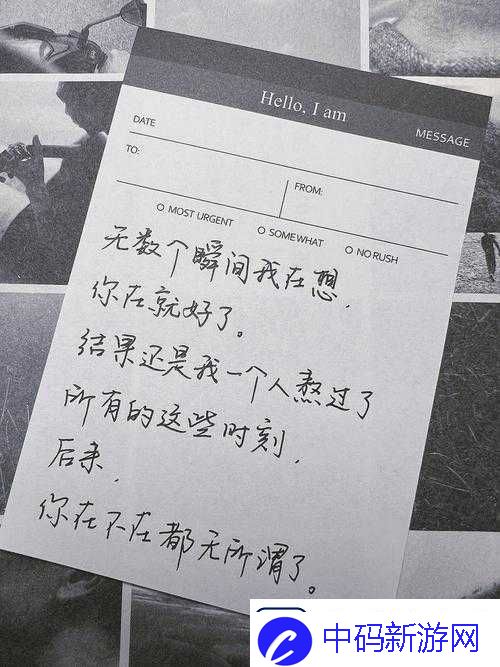 Hello, I am
MESSAGE
DATE
TO:
FROM:
MOST URGENT
SOMEWHAT
NO RUSH
无数个瞬间我在想，
你在就好了。
结果还是我一个人熬过了
所有的这些时刻，
后来，
你在不在都无所谓了。
中码新游网